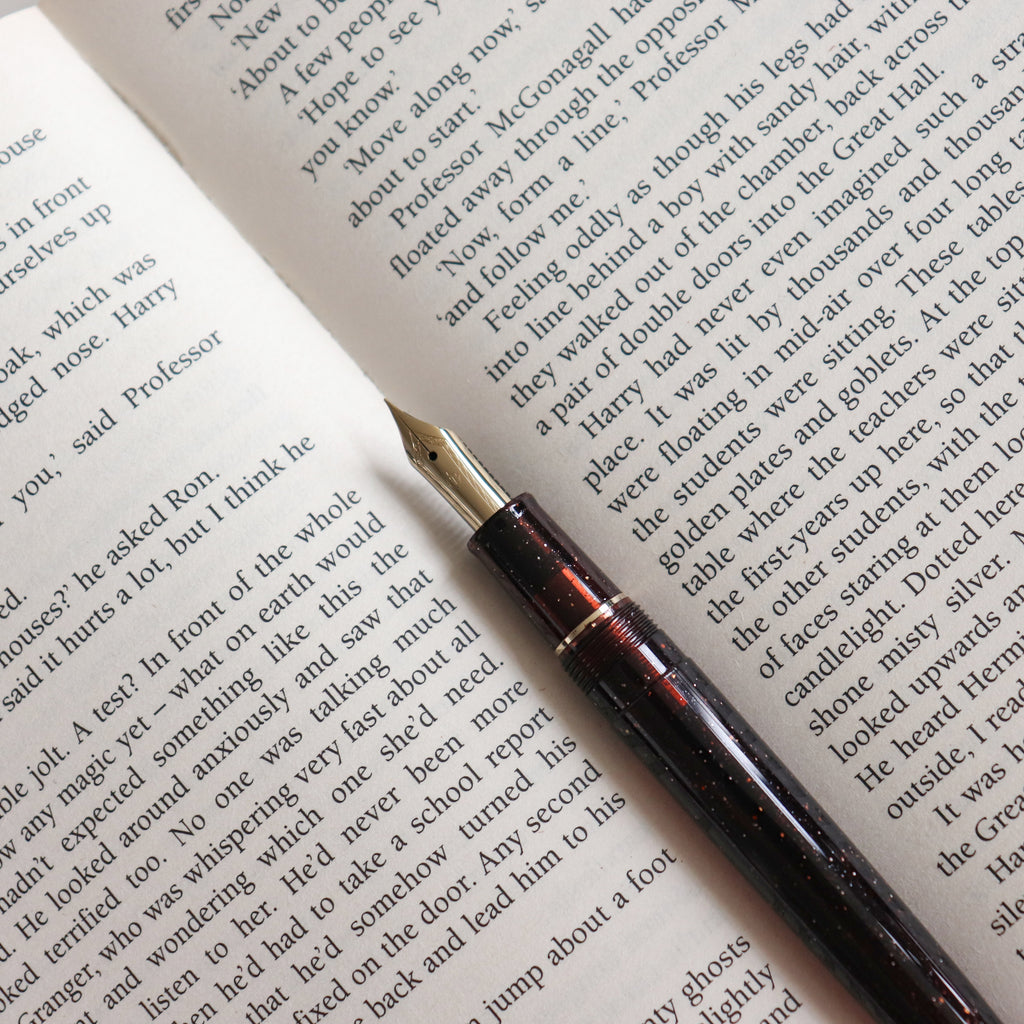 ouse
s in front
rselves up
oak, which was
dged nose. Harry
you,' said Professor
houses?' he asked Ron.
said it hurts a lot, but I think he
ed.
ble jolt. A test? In front of the whole
ow any magic yet – what on earth would
hadn't expected something like this the
d. He looked around anxiously and saw that
oked terrified too. No one was talking much
Granger, who was whispering very fast about all
and wondering which one she'd need.
listen to her. He'd never been more
hen he'd had to take a school report
that he'd somehow turned his
fixed on the door. Any second
back and lead him to his
jump about a foot
nty ghosts
lightly
and
firs
No
'New
'About to b
A few people
'Hope to see y
you know.'
'Move along now,' sa
about to start.'
Professor McGonagall had
floated away through the opposi
'Now, form a line,' Professor M
'and follow me.'
Feeling oddly as though his legs had
into line behind a boy with sandy hair, with
they walked out of the chamber, back across th
a pair of double doors into the Great Hall.
Harry had never even imagined such a stra
place. It was lit by thousands and thousan
were floating in mid-air over four long ta
the students were sitting. These tables
golden plates and goblets. At the top
table where the teachers were sitt
the first-years up here, so that t
the other students, with the t
of faces staring at them loo
candlelight. Dotted here
shone misty silver. M
looked upwards an
He heard Hermi
outside, I read
It was h
the Grea
Ha
sile